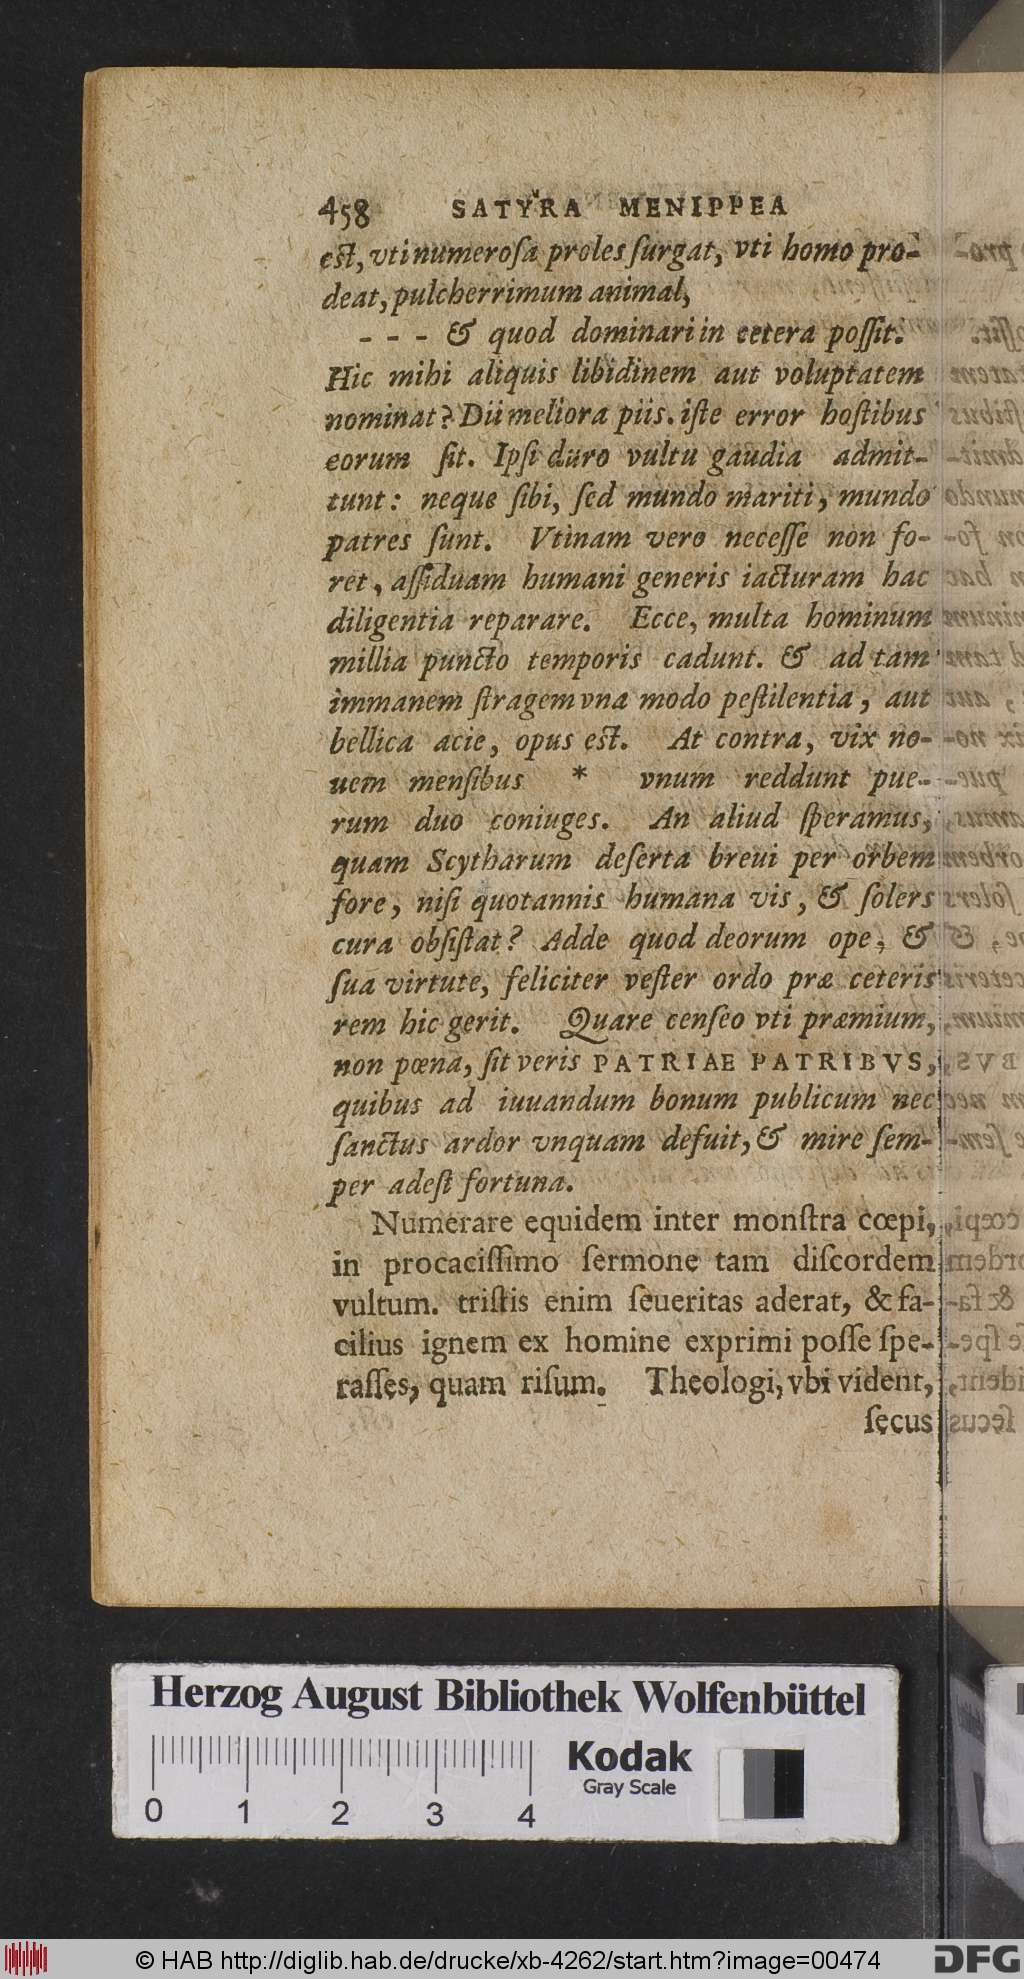 458 SATYRA MENIPPEA
est, vti numerosa proles surgat, vti homo pro-
deat, pulcherrimum animal,
- - - & quod dominari in cetera possit.
Hic mihi aliquis libidinem aut voluptatem
nominat? Dii meliora piis. iste error hostibus
eorum sit. Ipsi duro vultu gaudia admit-
tunt: neque sibi, sed mundo mariti, mundo
patres sunt. Vtinam vero necesse non fo-
ret, assiduam humani generis iacturam hac
diligentia reparare. Ecce, multa hominum
millia puncto temporis cadunt. & ad tam
immanem stragem vna modo pestilentia, aut
bellica acie, opus est. At contra, vix no-
uem mensibus * vnum reddunt pue-
rum duo coniuges. An aliud speramus,
quam Scytharum deserta breui per orbem
fore, nisi quotannis humana vis, & solers
cura obsistat? Adde quod deorum ope, &
sua virtute, feliciter vester ordo præ ceteris
rem hic gerit. Quare censeo vti præmium,
non pœna, sit veris PATRIAE PATRIBVS,
quibus ad iuuandum bonum publicum nec
sanctus ardor vnquam defuit, & mire sem-
per adest fortuna.
Numerare equidem inter monstra cœpi,
in procacissimo sermone tam discordem
vultum. tristis enim seueritas aderat, & fa-
cilius ignem ex homine exprimi posse spe-
rasses, quam risum. Theologi, vbi vident,
secus
Herzog August Bibliothek Wolfenbüttel
Kodak
Gray Scale
0 1 2 3 4
© HAB http://diglib.hab.de/drucke/xb-4262/start.htm?image=00474
DFG